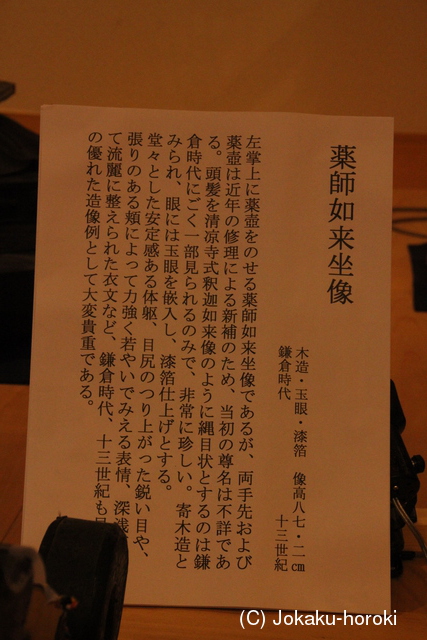 薬師如来坐像
木造・玉眼・漆箔　像高八七・二㎝
鎌倉時代　十三世紀
左掌上に薬壺をのせる薬師如来坐像であるが、両手先および
薬壺は近年の修理による新補のため、当初の尊名は不詳であ
る。頭髪を清凉寺式釈迦如来像のように縄目状とするのは鎌
倉時代にごく一部見られるのみで、非常に珍しい。寄木造と
みられ、眼には玉眼を嵌入し、漆箔仕上げとする。
堂々とした安定感ある体躯、目尻のつり上がった鋭い目や、
張りのある頬によって力強く若やいでみえる表情、深浅
て流麗に整えられた衣文など、鎌倉時代、十三世紀も
の優れた造像例として大変貴重である。
(C) Jokaku-horoki